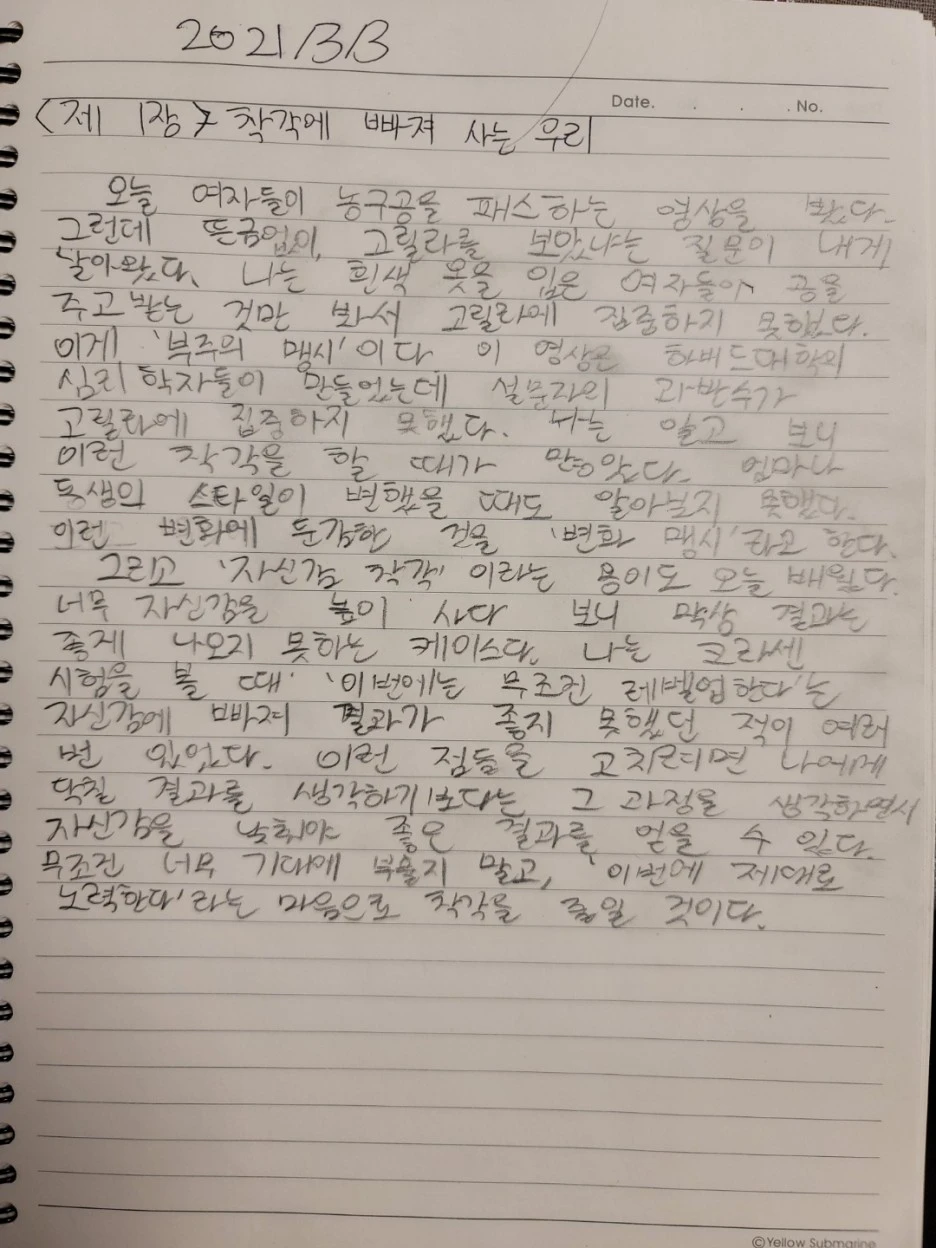 2021/3/3
Date. . . No.
<제 1장> 착각에 빠져 사는 우리
오늘 여자들이 농구공을 패스하는 영상을 봤다.
그런데 뜬금없이, 고릴라를 보았냐는 질문이 내게
날아왔다. 나는 흰색 옷을 입은 여자들이 공을
주고 받는 것만 봐서 고릴라에 집중하지 못했다.
이게 '부주의 맹시'이다 이 영상은 하버드대학의
심리학자들이 만들었는데 설문자의 과반수가
고릴라에 집중하지 못했다. 나는 알고 보니
이런 착각을 할 때가 많았다. 엄마나
동생의 스타일이 변했을 때도 알아보지 못했다.
이런 변화에 둔감한 걸을 '변화 맹시'라고 한다.
그리고 '자신감 착각' 이라는 용어도 오늘 배웠다.
너무 자신감을 높이 사다 보니 막상 결과는
좋게 나오지 못하는 케이스다. 나는 코라센
시험을 볼 때 '이번에는 무조건 레벨업한다'는
자신감에 빠져 결과가 좋지 못했던 적이 여러
번 있었다. 이런 점들을 고치려면 나에게
닥칠 결과를 생각하기보다는 그 과정을 생각하면서
자신감을 낮춰야 좋은 결과를 얻을 수 있다.
무조건 너무 기대에 부풀지 말고, '이번에 제대로
노력한다'라는 마음으로 착각을 줄일 것이다.
©Yellow Submarine